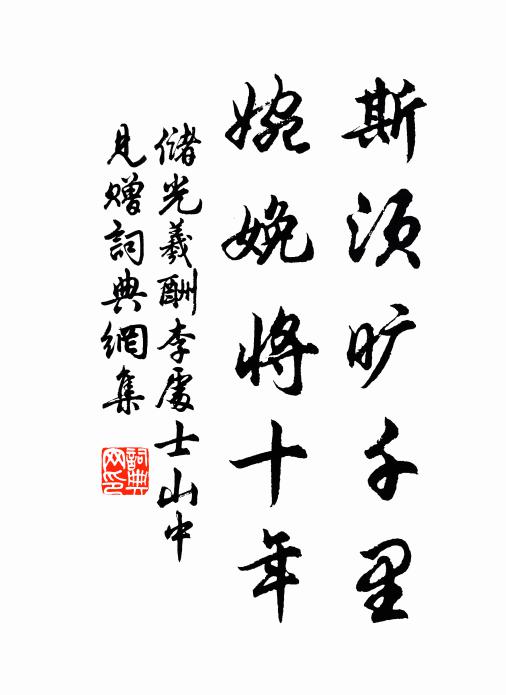 斯须旷千里
婉娩将十年
储光羲酬李處士山中
見贈詞典網集
詞典
网印